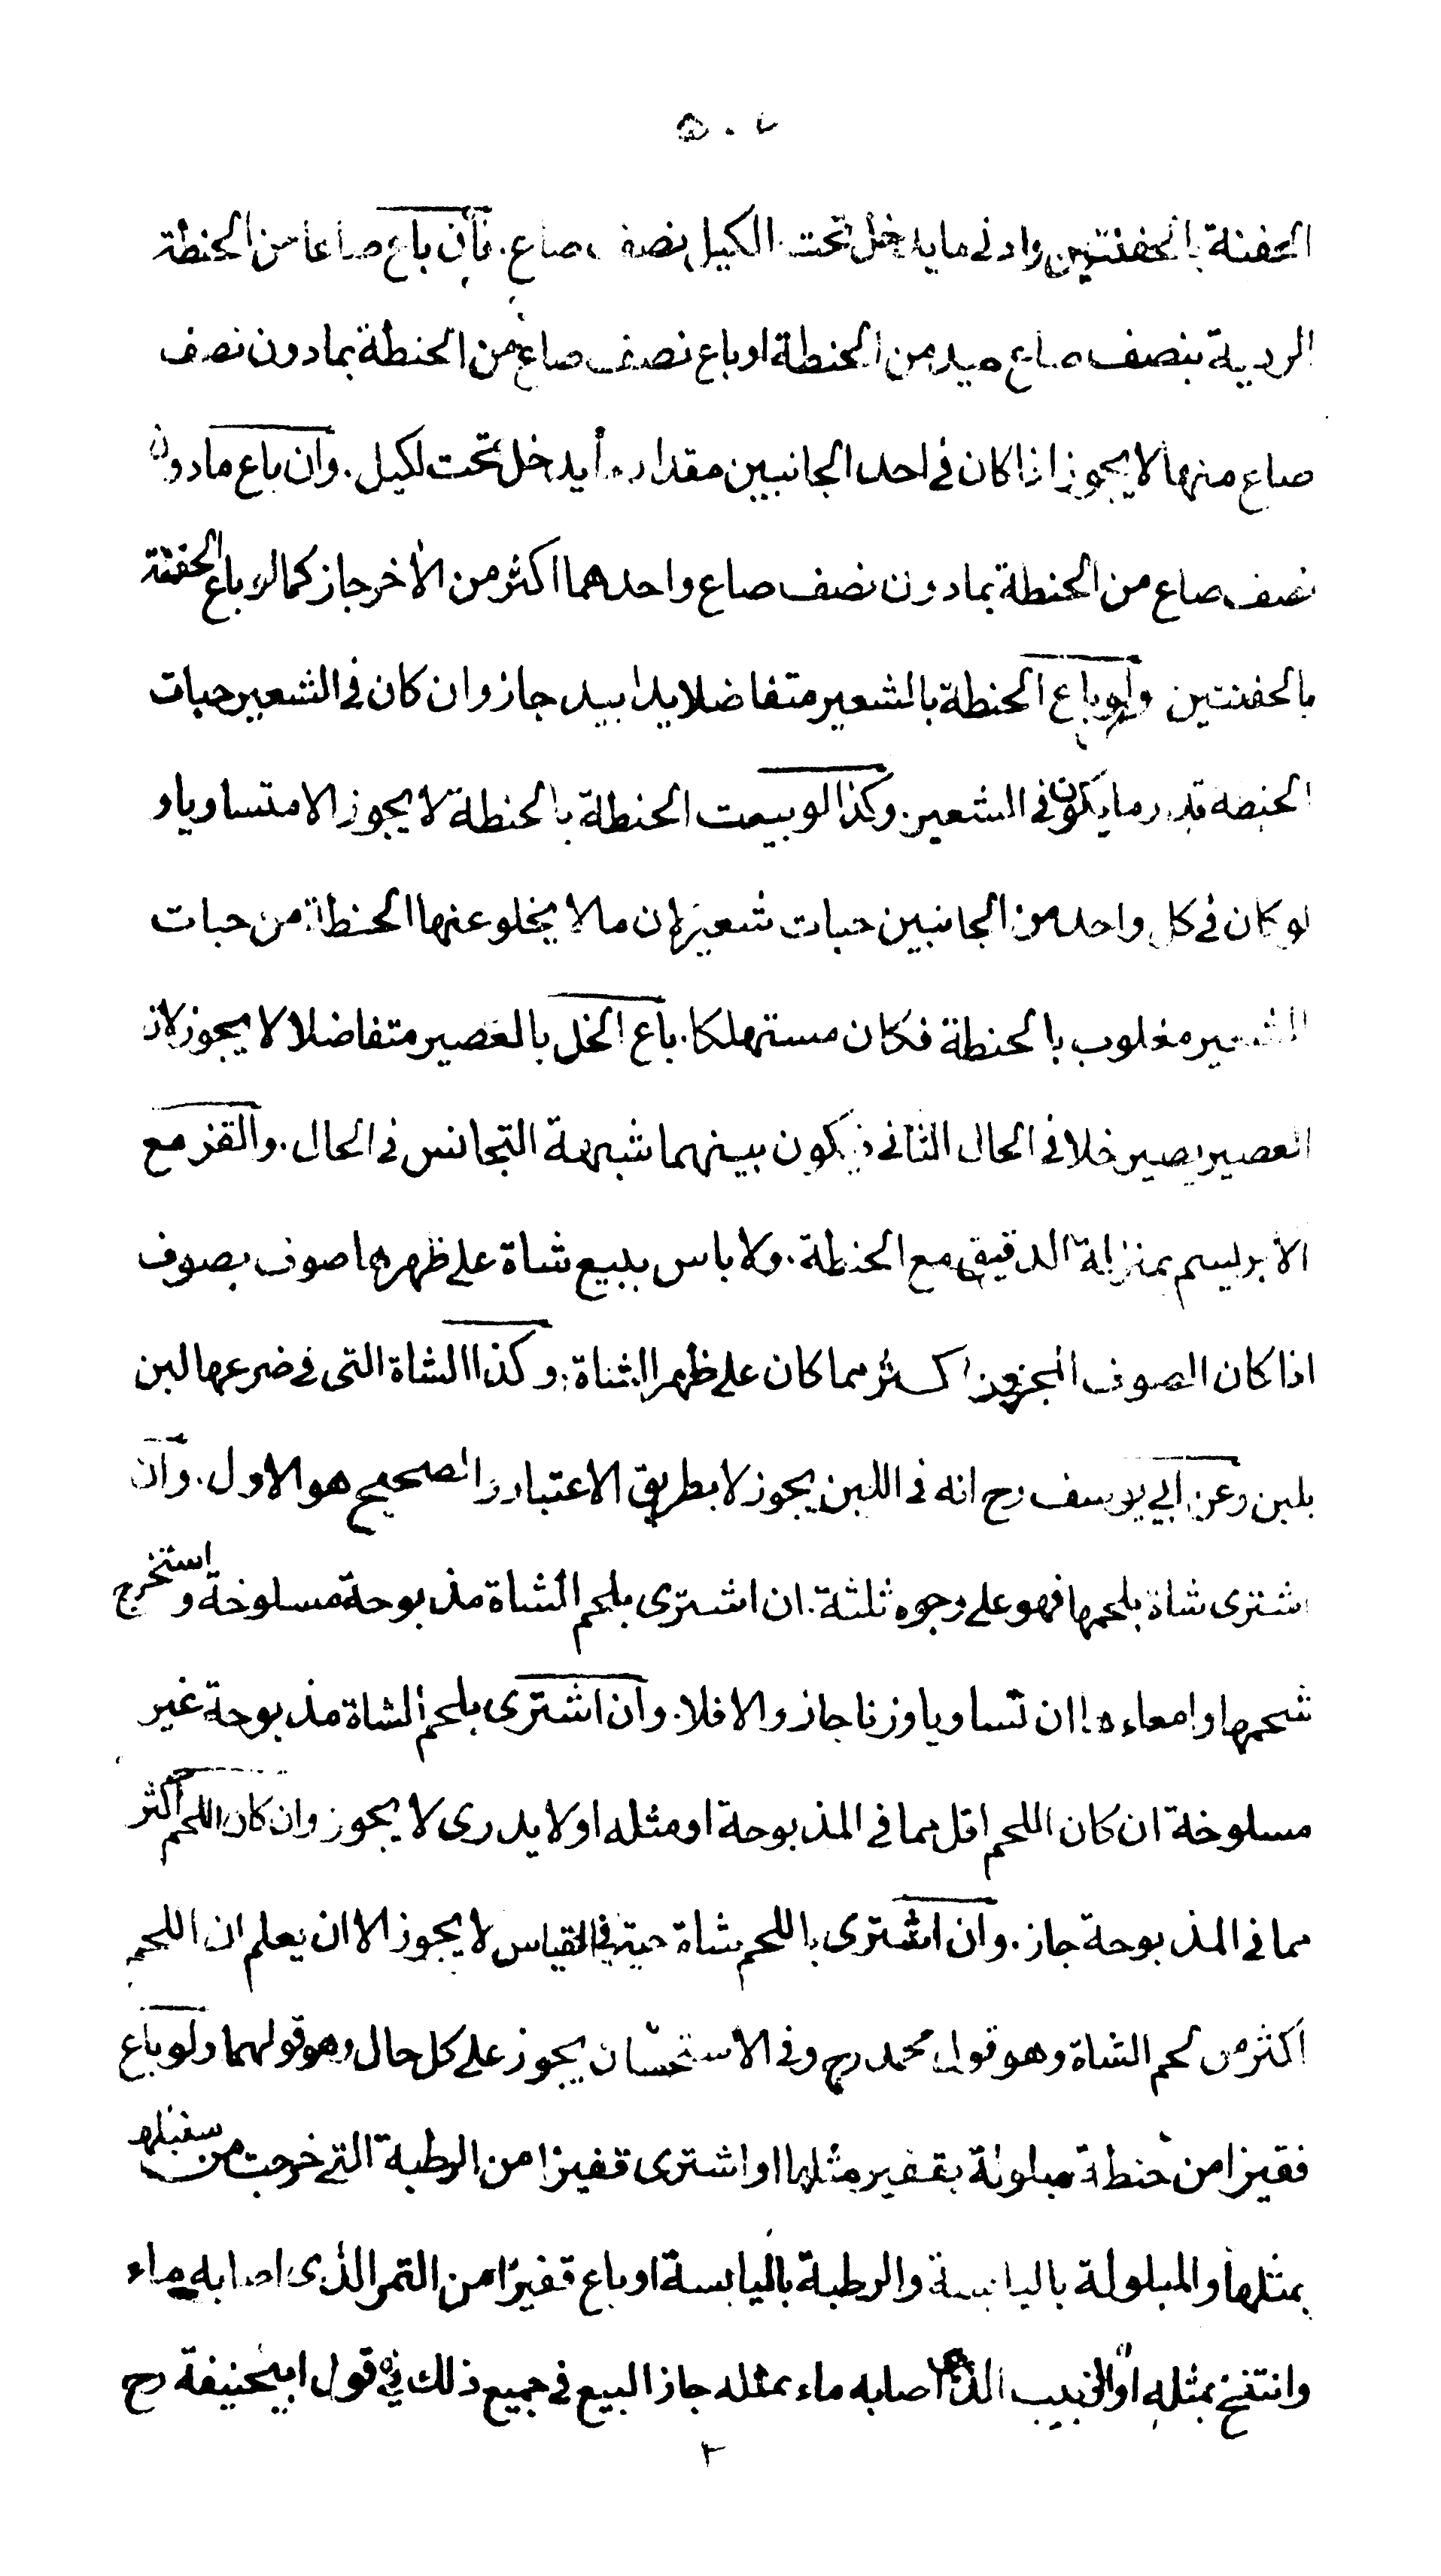 ٥٠٢
الحفنة بالحفنتين وادنى ما يدخل تحت الكيل نصف صاع. فان باع صاعا من الحنطة
الردية بنصف صاع جيد من الحنطة او باع نصف صاع من الحنطة بما دون نصف
صاع منها لا يجوز اذا كان في احد الجانبين مقدار ما يدخل تحت لكيل. وان باع ما دون
نصف صاع من الحنطة بما دون نصف صاع واحدهما اكثر من الاخر جاز كما لو باع الحفنة
بالحفنتين ولو باع الحنطة بالشعير متفاضلا يدا بيد جاز وان كان في الشعير حبات
الحنطة قدر ما يكون في الشعير. وكذا لو بيعت الحنطة بالحنطة لا يجوز الا متساويا و
لو كان في كل واحد من الجانبين حبات شعير لان ما لا يخلو عنها الحنطة من حبات
الشعير مغلوب بالحنطة فكان مستهلكا. باع الخل بالعصير متفاضلا لا يجوز لان
العصير يصير خلا في الحال الثاني فيكون بينهما شبهة التجانس في الحال. والقز مع
الابريسم بمنزلة الدقيق مع الحنطة. ولا باس ببيع شاة على ظهرها صوف بصوف
اذا كان الصوف المجزوز اكثر مما كان على ظهر الشاة. وكذا الشاة التي في ضرعها لبن
بلبن وعن ابي يوسف رح انه في اللبن يجوز لا بطريق الاعتبار والصحيح هو الاول. وان
اشترى شاة بلحمها فهو على وجوه ثلثة. ان اشترى بلحم الشاة مذبوحة مسلوخة واستخرج
شحمها وامعاءها ان تساويا وزنا جاز والا فلا. وان اشترى بلحم الشاة مذبوحة غير
مسلوخة ان كان اللحم اقل مما في المذبوحة او مثله او لا يدرى لا يجوز وان كان اللحم اكثر
مما في المذبوحة جاز. وان اشترى باللحم شاة حية في القياس لا يجوز الا ان يعلم ان اللحم
اكثر من لحم الشاة وهو قول محمد رح وفي الاستحسان يجوز على كل حال وهو قولهما ولو باع
فقيزا من حنطة مبلولة بقفيز مثلها او اشترى قفيزا من الرطبة التي خرجت من سنبلها
بمثلها والمبلولة باليابسة والرطبة باليابسة او باع قفيزا من التمر الذي اصابه ماء
وانتفخ بمثله او الزبيب الذي اصابه ماء بمثله جاز البيع في جميع ذلك في قول ابيحنيفة رح